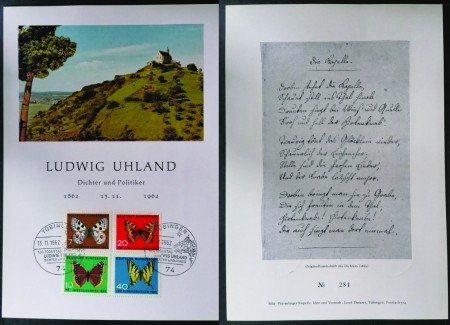 LUDWIG UHLAND
Dichter und Politiker
1862 13.11. 1962
TÜBINGEN
13.11.1962
LUDWIG UHLAND
74
10
20
10
40
Die Kapelle.
Droben stehet die Kapelle,
Schauet still ins Thal hinab,
Drunten singt bei Wies' und Quelle
Froh und hell der Hirtenknab.
Traurig tönt das Glöcklein nieder,
Schauerlich der Leichenchor,
Stille sind die frohen Lieder,
Und der Knabe lauscht empor.
Droben bringt man sie zu Grabe,
Die sich freuten in dem Thal,
Hirtenknabe! Hirtenknabe!
Dir auch singt man dort einmal.
Originalhandschrift des Dichters
№ 281